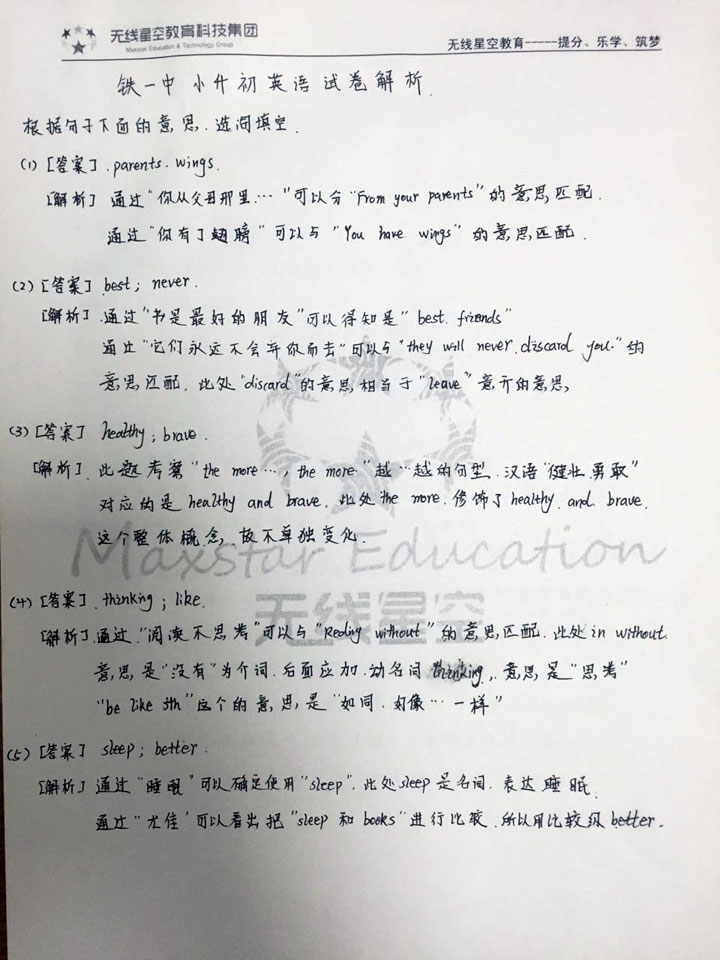 无线星空教育科技集团
Maxstar Education & Technology Group
无线星空教育-----提分、乐学、筑梦
铁一中 小升初英语试卷解析.
根据句子下面的意思.选词填空.
(1) [答案].parents. wings.
[解析] 通过"你从父母那里…"可以分"From your parents"的意思匹配.
通过"你有了翅膀"可以与"You have wings"的意思匹配.
(2) [答案] best; never.
[解析].通过"书是最好的朋友"可以得知是"best. friends"
通过"它们永远不会弃你而去"可以与"they will never.discard you."的
意思匹配.此处"discard"的意思相当于"leave"意开的意思,
(3) [答案] healthy; brave.
[解析].此题考察"the more…, the more"越…越的句型.汉语"健壮.勇敢"
对应的是healthy and brave.此处the more.修饰了healthy.and.brave.
这个整体概念,故不单独变化.
Maxstar Education
无线星空
(4) [答案].thinking; like.
[解析].通过."阅读不思考"可以与"Reading without"的意思匹配.此处in without.
意思是"没有"为介词.后面应加.动名词thinking,.意思是"思考"
"be like sth"这个的意思是"如同.好像…一样"
(5) [答案] sleep; better.
[解析] 通过"睡眠"可以确定使用"sleep".此处sleep是名词.表达睡眠.
通过"尤佳"可以看出把"sleep和books"进行比较.所以用比较级better.